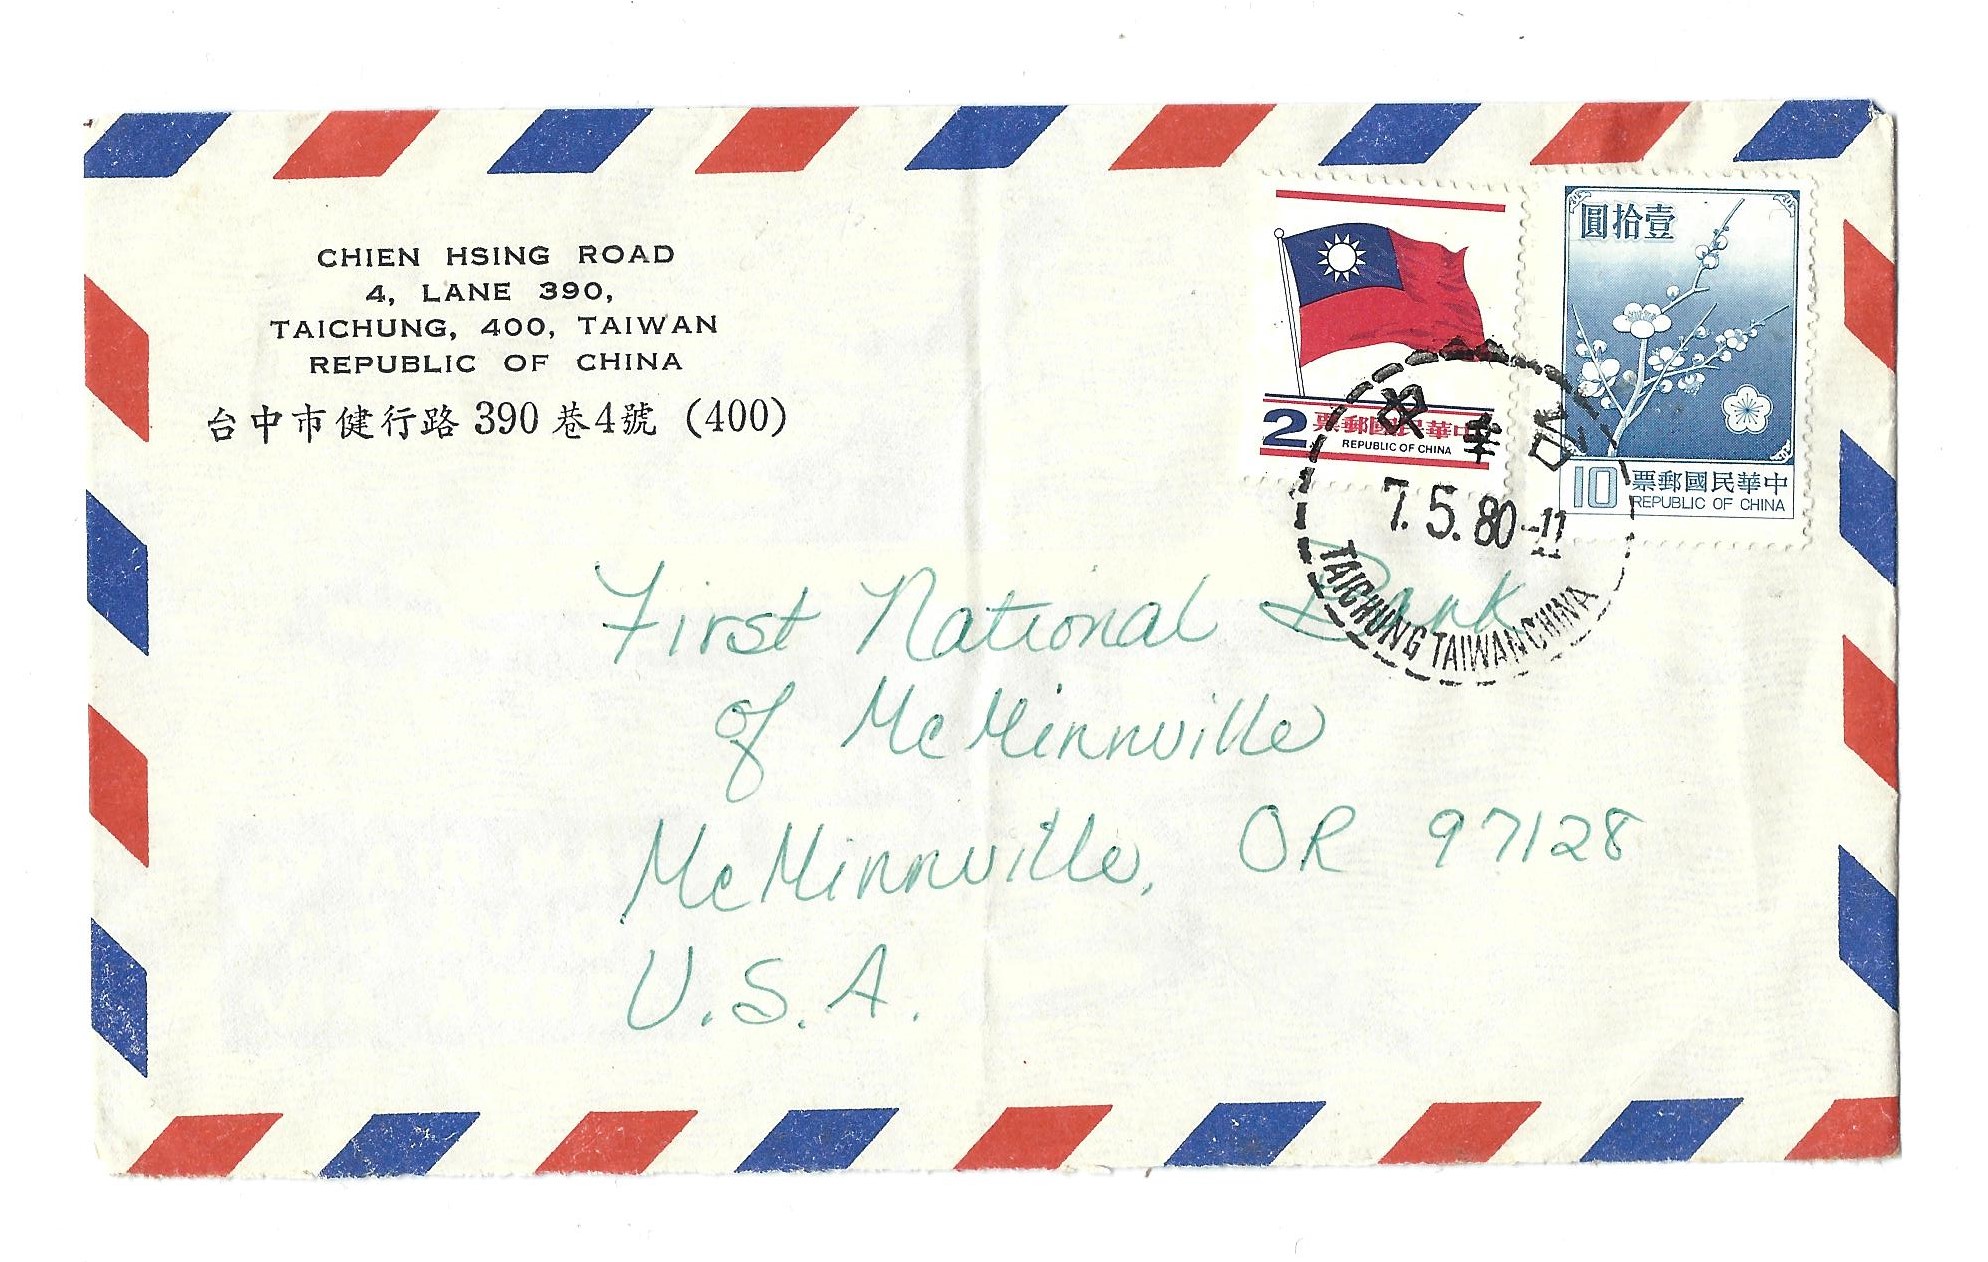 CHIEN HSING ROAD
4, LANE 390,
TAICHUNG, 400, TAIWAN
REPUBLIC OF CHINA
台中市健行路 390 巷4號 (400)
2
票郵國民華中
REPUBLIC OF CHINA
圓拾壹
10
票郵國民華中
REPUBLIC OF CHINA
中
7.5.80-11
TAICHUNG TAIWAN CHINA
First National Bank
of McMinnville
McMinnville, OR 97128
U.S.A.